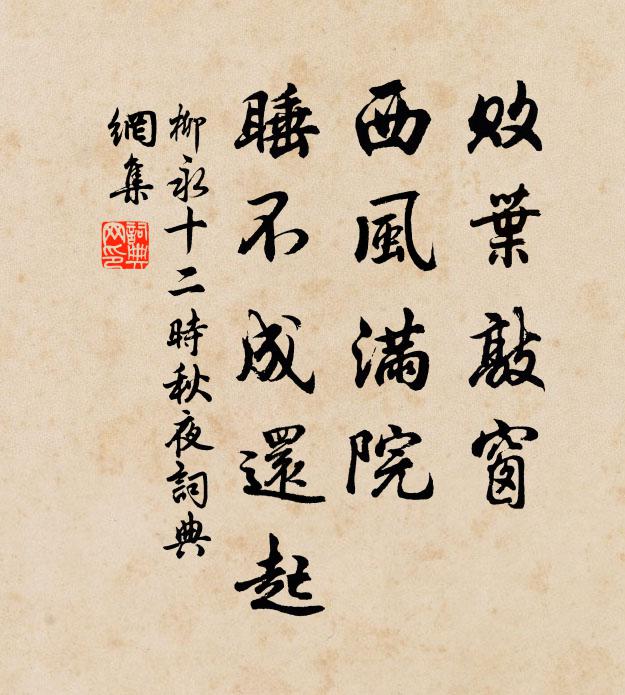 敗葉敲窗
西風滿院
睡不成還起
柳永十二時秋夜詞典
網集
詞典
网印